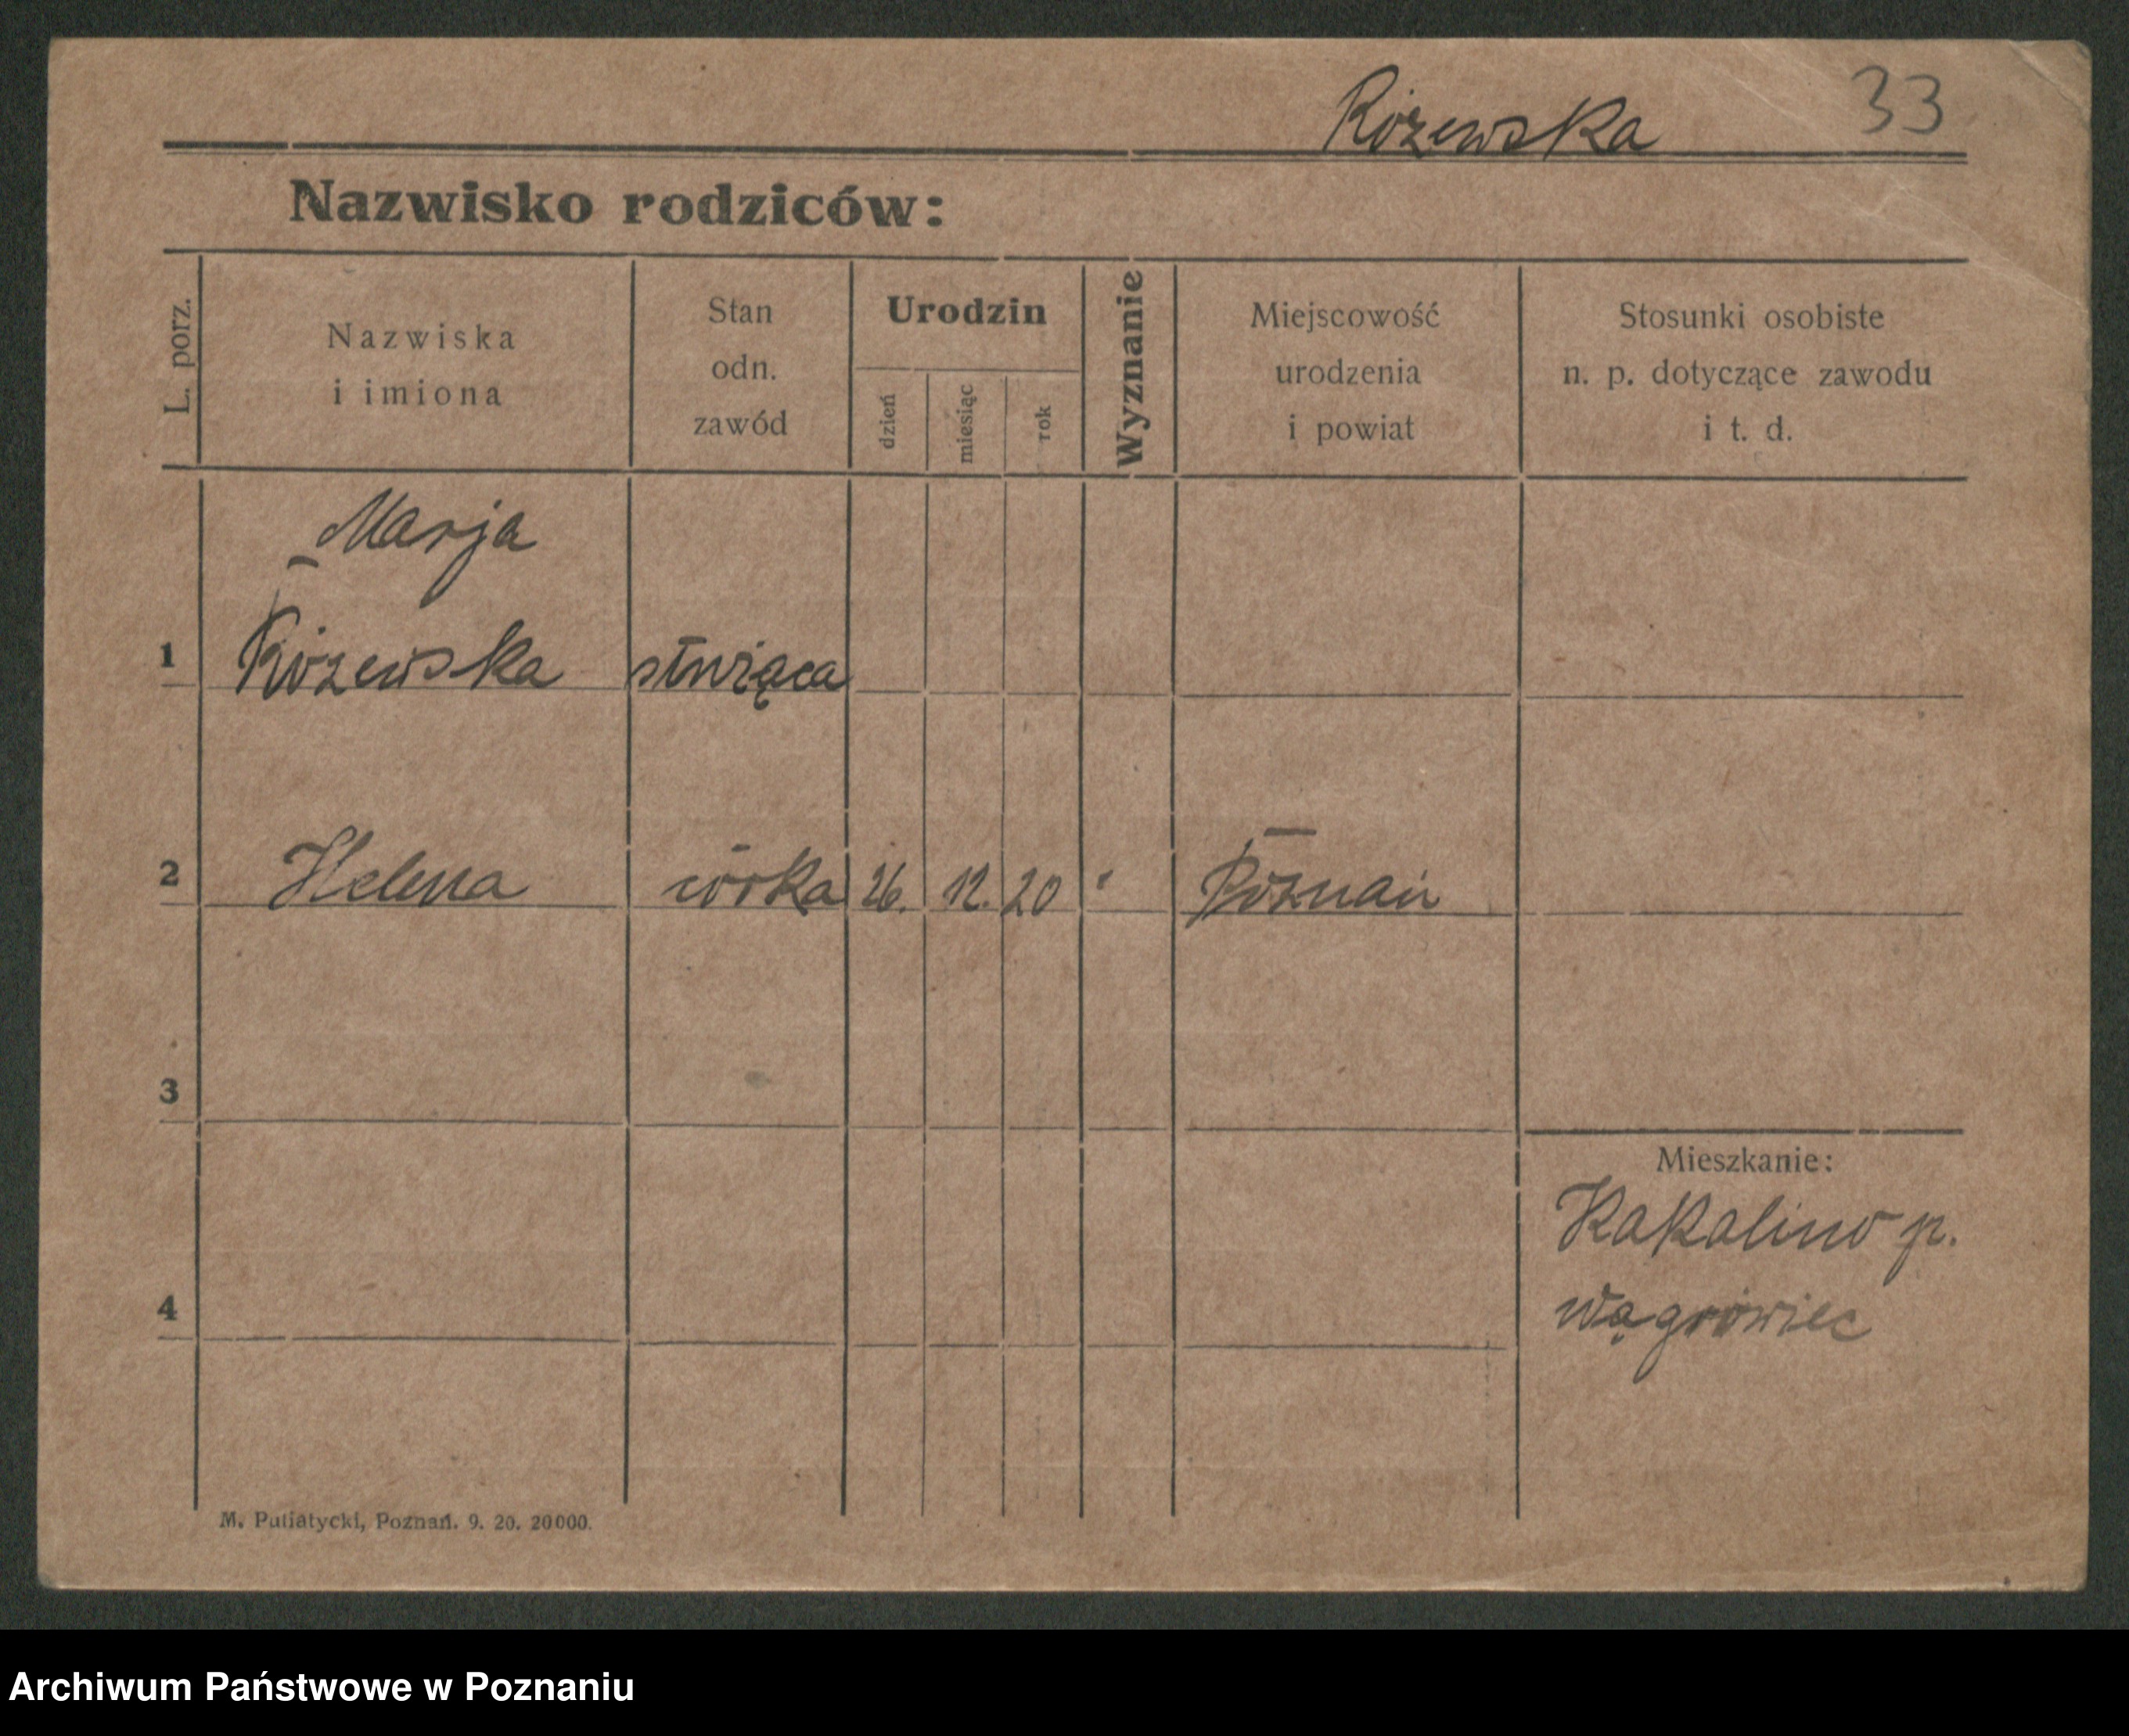 Różewska 33
Nazwisko rodziców:
L. porz.
Nazwiska
i imiona
Stan
odn.
zawód
Urodzin
dzień
miesiąc
rok
Wyznanie
Miejscowość
urodzenia
i powiat
Stosunki osobiste
n. p. dotyczące zawodu
i t. d.
Marja
1 Różewska służąca
2 Helena córka 26. 12. 20 Poznań
3
Mieszkanie:
Kakalino p.
4 Wągrówiec
M. Putiatycki, Poznań. 9. 20. 20000.
Archiwum Państwowe w Poznaniu